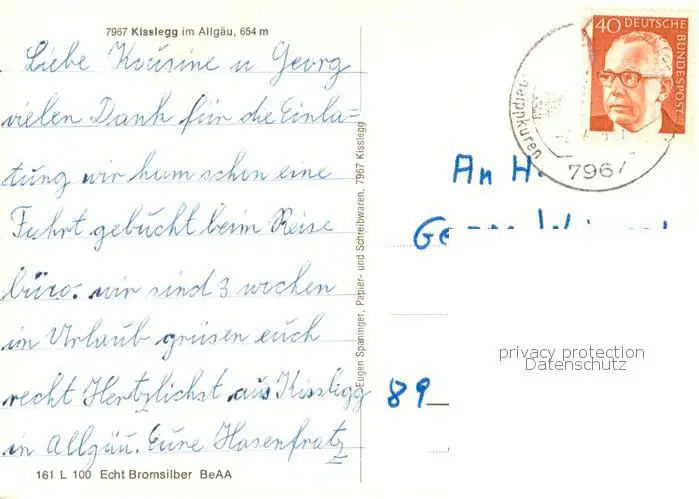 7967 Kisslegg im Allgäu, 654 m
Liebe Kousine u Georg
vielen Dank für die Einla=
tung wir ham schon eine
Fahrt gebucht beim Reise
büro. wir sind 3 wochen
im Urlaub grüsen euch
recht Hertzlichst aus Kisslegg
in Allgäu. Eure Hasenfratz
161 L 100 Echt Bromsilber BeAA
Eugen Spaninger, Papier- und Schreibwaren, 7967 Kisslegg
40 DEUTSCHE BUNDESPOST
7967
An H.
89
privacy protection
Datenschutz